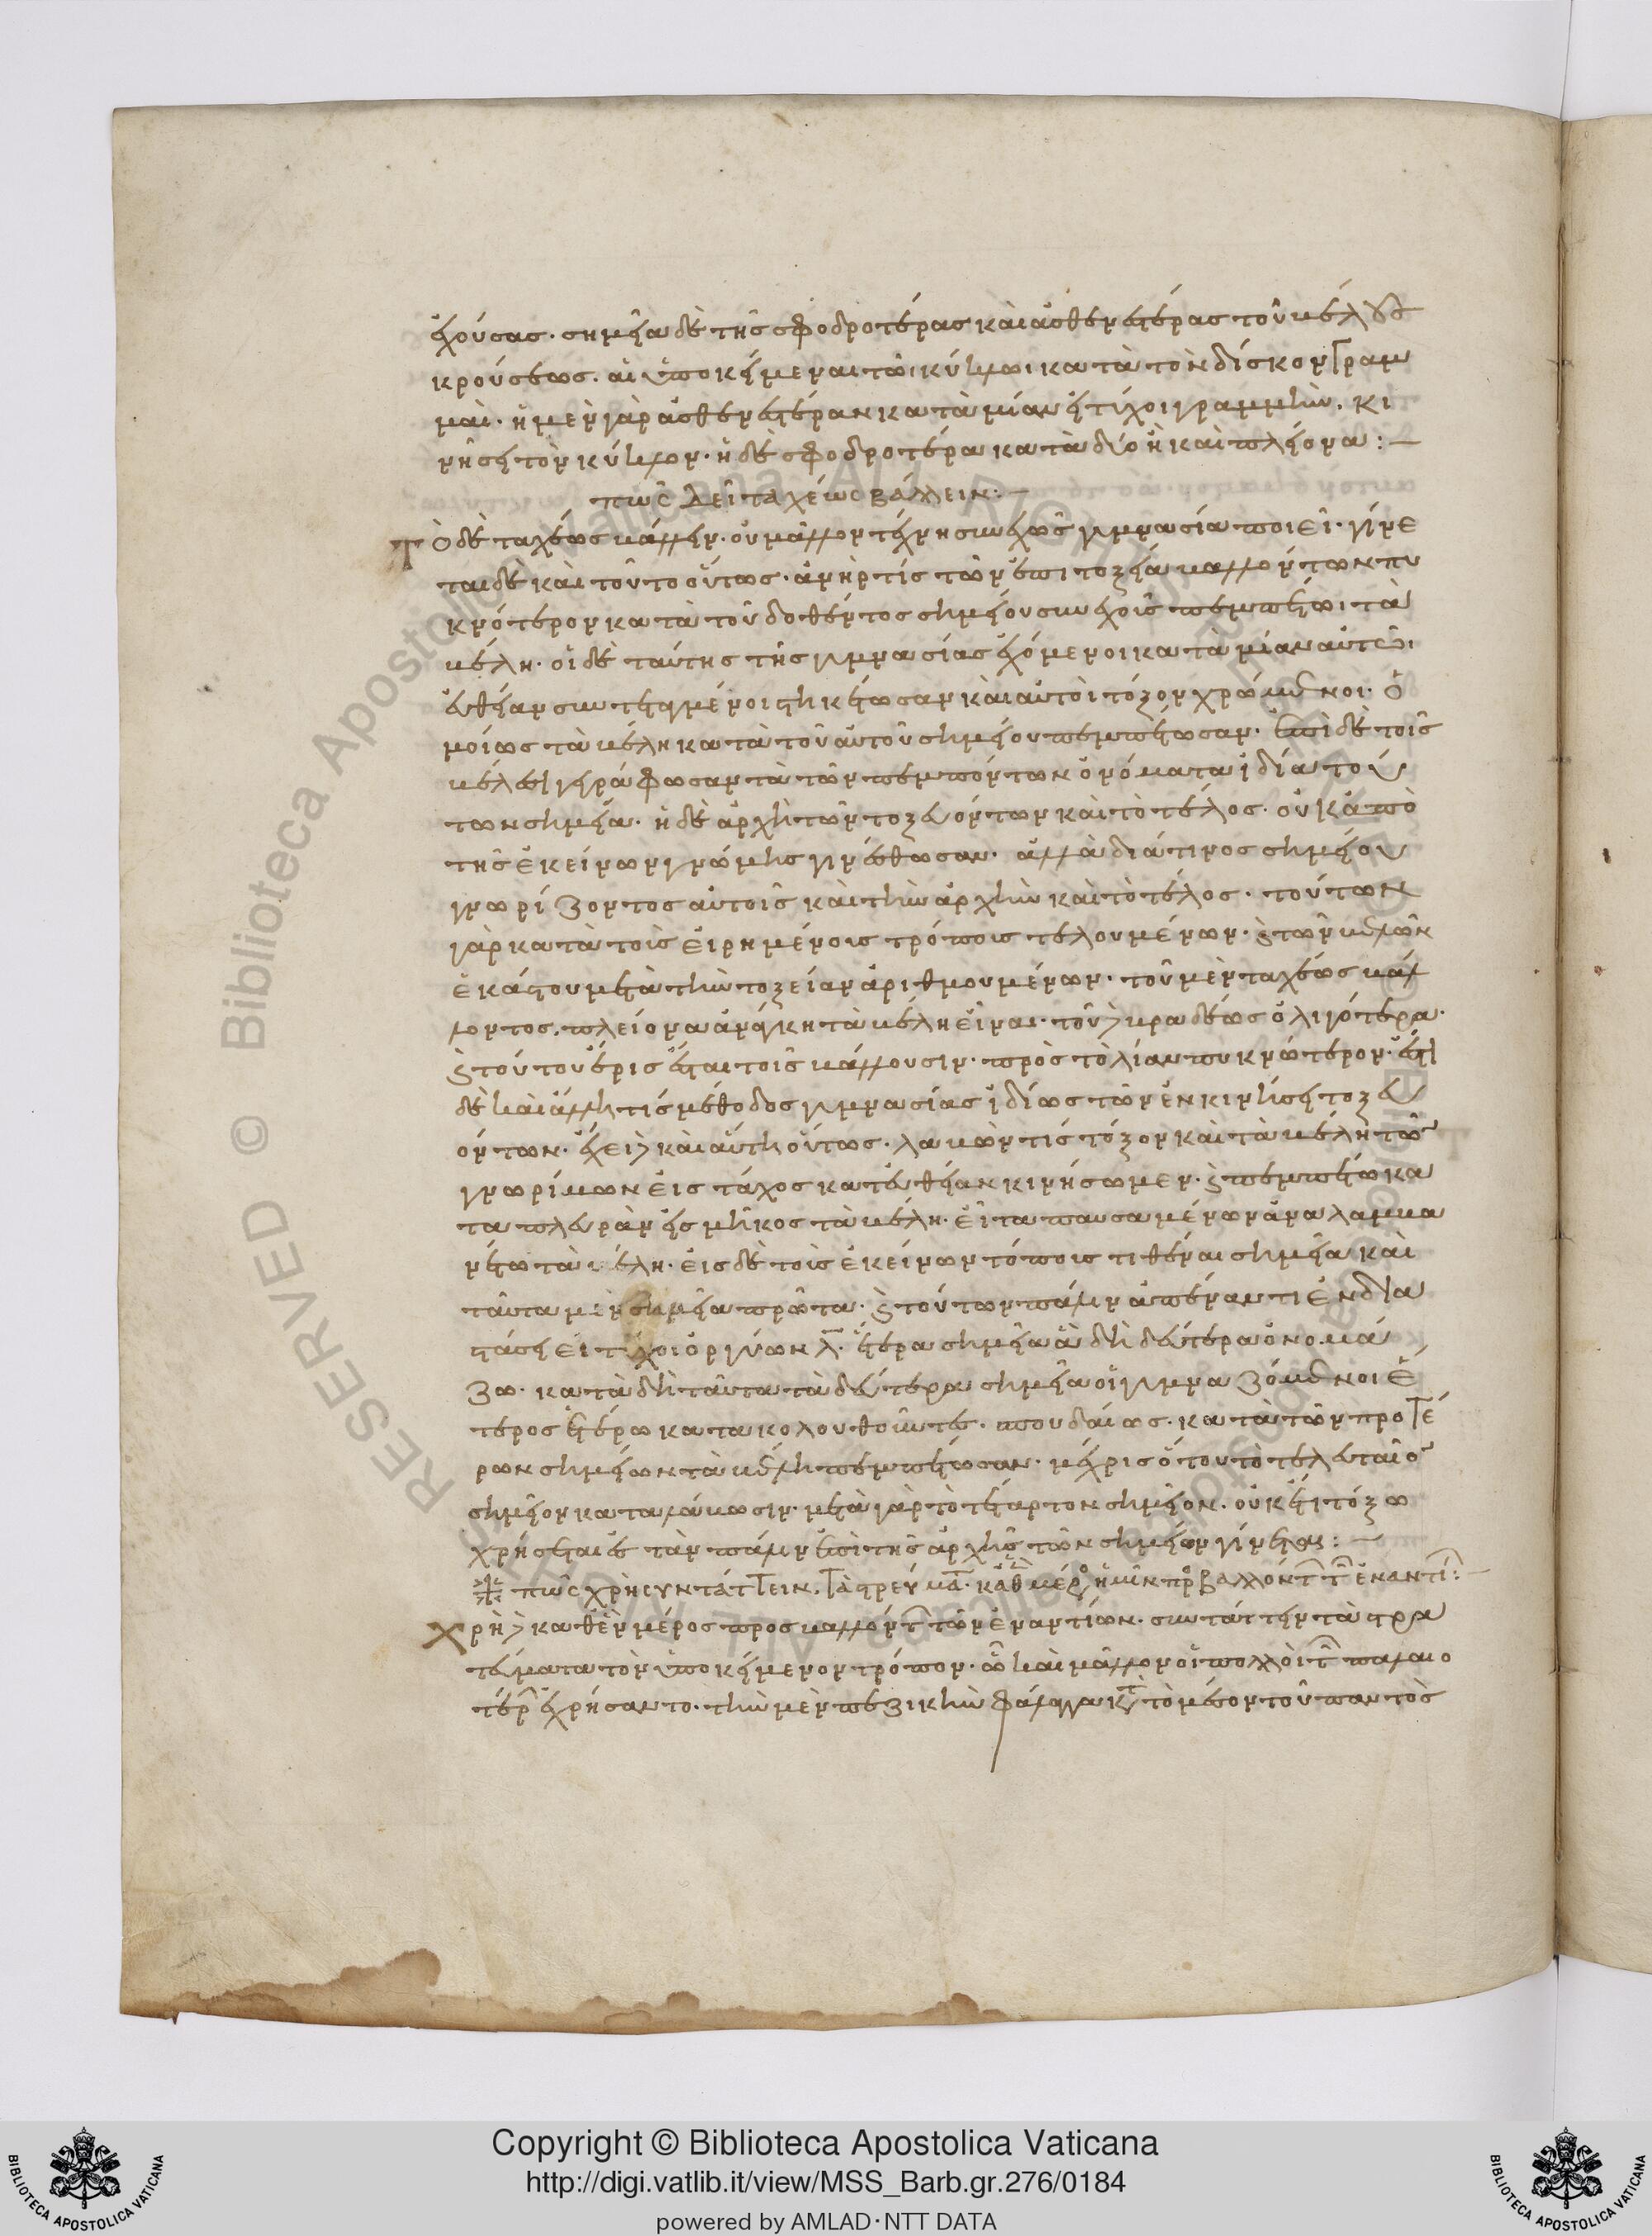 ἐχούσας· σημεῖα δὲ τῆς σφοδροτέρας καὶ ἀσθενεστέρας τοῦ βέλους
κρούσεως· αἱ ὑποκείμεναι τῶι κύκλωι κατὰ τὸν δίσκον γραμ
μαί· ἡ μὲν γὰρ ἀσθενεστέραν κατὰ μίαν εἰ τύχοι γραμμὴν, κι
νήσει τὸν κύκλον· ἡ δὲ σφοδροτέρα κατὰ δύο ἢ καὶ πλείονα:—
πῶς δεῖ ταχέως βάλλειν:—
Τὸ δὲ ταχέως βάλλειν· οὐ μᾶλλον τέχνη συνεχὼς γυμνασία ποιεῖ· γίνε
ται δὲ καὶ τοῦτο οὕτως· ἀνήρ τις τῶν ἐπὶ τοξεία βαλλόντων πυ
κνότερον κατὰ τοῦ δοθέντος σημείου συνεχοῖς πεμπέτωι τὰ
βέλη· οἱ δὲ ταύτης τῆς γυμνασίας ἐχόμενοι κατὰ μίαν αὐτῶι
εὐθεῖαν συντεταγμένοι στηκέτωσαν καὶ αὐτοὶ τόξον χρώμενοι· ὁ
μοίως τὰ βέλη κατὰ τοῦ αὐτοῦ σημείου πεμπέτωσαν· ἐπὶ δὲ τοῖς
βέλεσι γραφέτωσαν τὰ τῶν πεμπόντων ὀνόματα ἰδία τού
των σημεῖα· ἡ δὲ ἀρχὴ τῶν τοξευόντων καὶ τὸ τέλος· οὐκ ἀπὸ
τῆς ἐκείνων γνώμης γινέσθωσαν· ἀλλὰ διά τινος σημείου
γνωρίζοντος αὐτοῖς καὶ τὴν ἀρχὴν καὶ τὸ τέλος· τούτων
γὰρ κατὰ τοὺς εἰρημένους τρόπους τελουμένων· καὶ τῶν βελῶν
ἑκάστου μετὰ τὴν τοξείαν ἀριθμουμένων· τοῦ μὲν ταχέως βάλ
λοντος, πλείονα ἀνάγκη τὰ βέλη εἶναι· τοῦ δὲ βραδέως ὀλιγότερα·
καὶ τούτου ἔρις ἔσται τοῖς βάλλουσιν· πρὸς τὸ λίαν πυκνότερον· ἔστι
δὲ καὶ ἄλλη τίς μέθοδος γυμνασίας ἰδίως τῶν ἐν κινήσει τοξευ
όντων· ἔχει δὲ καὶ αὐτὴ οὕτως· λαβών τις τόξον καὶ τὰ βέλη τῶν
γνωρίμων εἰς τάχος κατ' εὐθείαν κινήσωμεν· καὶ πεμπέτω κα
τὰ πλευρὰν εἰς μῆκος τὰ βέλη· εἶτα παυσαμένων ἀναλαμβα
νέτω τὰ βέλη· εἰς δὲ τοὺς ἐκείνων τόπους τιθέναι σημεῖα καὶ
ταῦτα μὲν σημεῖα πρῶτα· καὶ τούτων πάλιν ἀπέναντι ἐν δια
στάσει εἰ τύχοι ὀργυιῶν λ· ἕτερα σημεῖα ἃ δὴ δεύτερα ὀνομά
ζω· κατὰ δὴ ταῦτα τὰ δεύτερα σημεῖα οἱ γυμναζόμενοι ἕ
τερος ἑτέρω κατακολουθοῦντες· σπουδαίως· κατὰ τῶν προτέ
ρων σημείων τὰ βέλη πεμπέτωσαν· μέχρις ὅτου τὸ τελευταῖον
σημεῖον καταλάβωσιν· μετὰ γὰρ τὸ τέταρτον σημεῖον· οὐκ ἔτι τόξω
χρήσεται ἐὰν πάλιν ἐπὶ τῆς ἀρχῆς τῶν σημείων γίνεται:—
πῶς χρὴ συντάττειν, τὰ στρεύματα· καθ' ἓν μέρος ἡμῖν προσβαλλόντων τῶν ἐναντίων:—
Χρὴ δὲ καθ' ἓν μέρος προσβαλλόντων τῶν ἐναντίων· συντάττειν τὰ στρα
τεύματα τὸν ὑποκείμενον τρόπον· ὧ καὶ μᾶλλον οἱ πολλοὶ τῶν παλαιο
τέρων ἐχρήσαντο· τὴν μὲν πεζικὴν φάλαγγα κατὰ τὸ μέσον τοῦ παντὸς
Copyright © Biblioteca Apostolica Vaticana
http://digi.vatlib.it/view/MSS_Barb.gr.276/0184
powered by AMLAD·NTT DATA
BIBLIOTECA APOSTOLICA VATICANA
BIBLIOTECA APOSTOLICA VATICANA